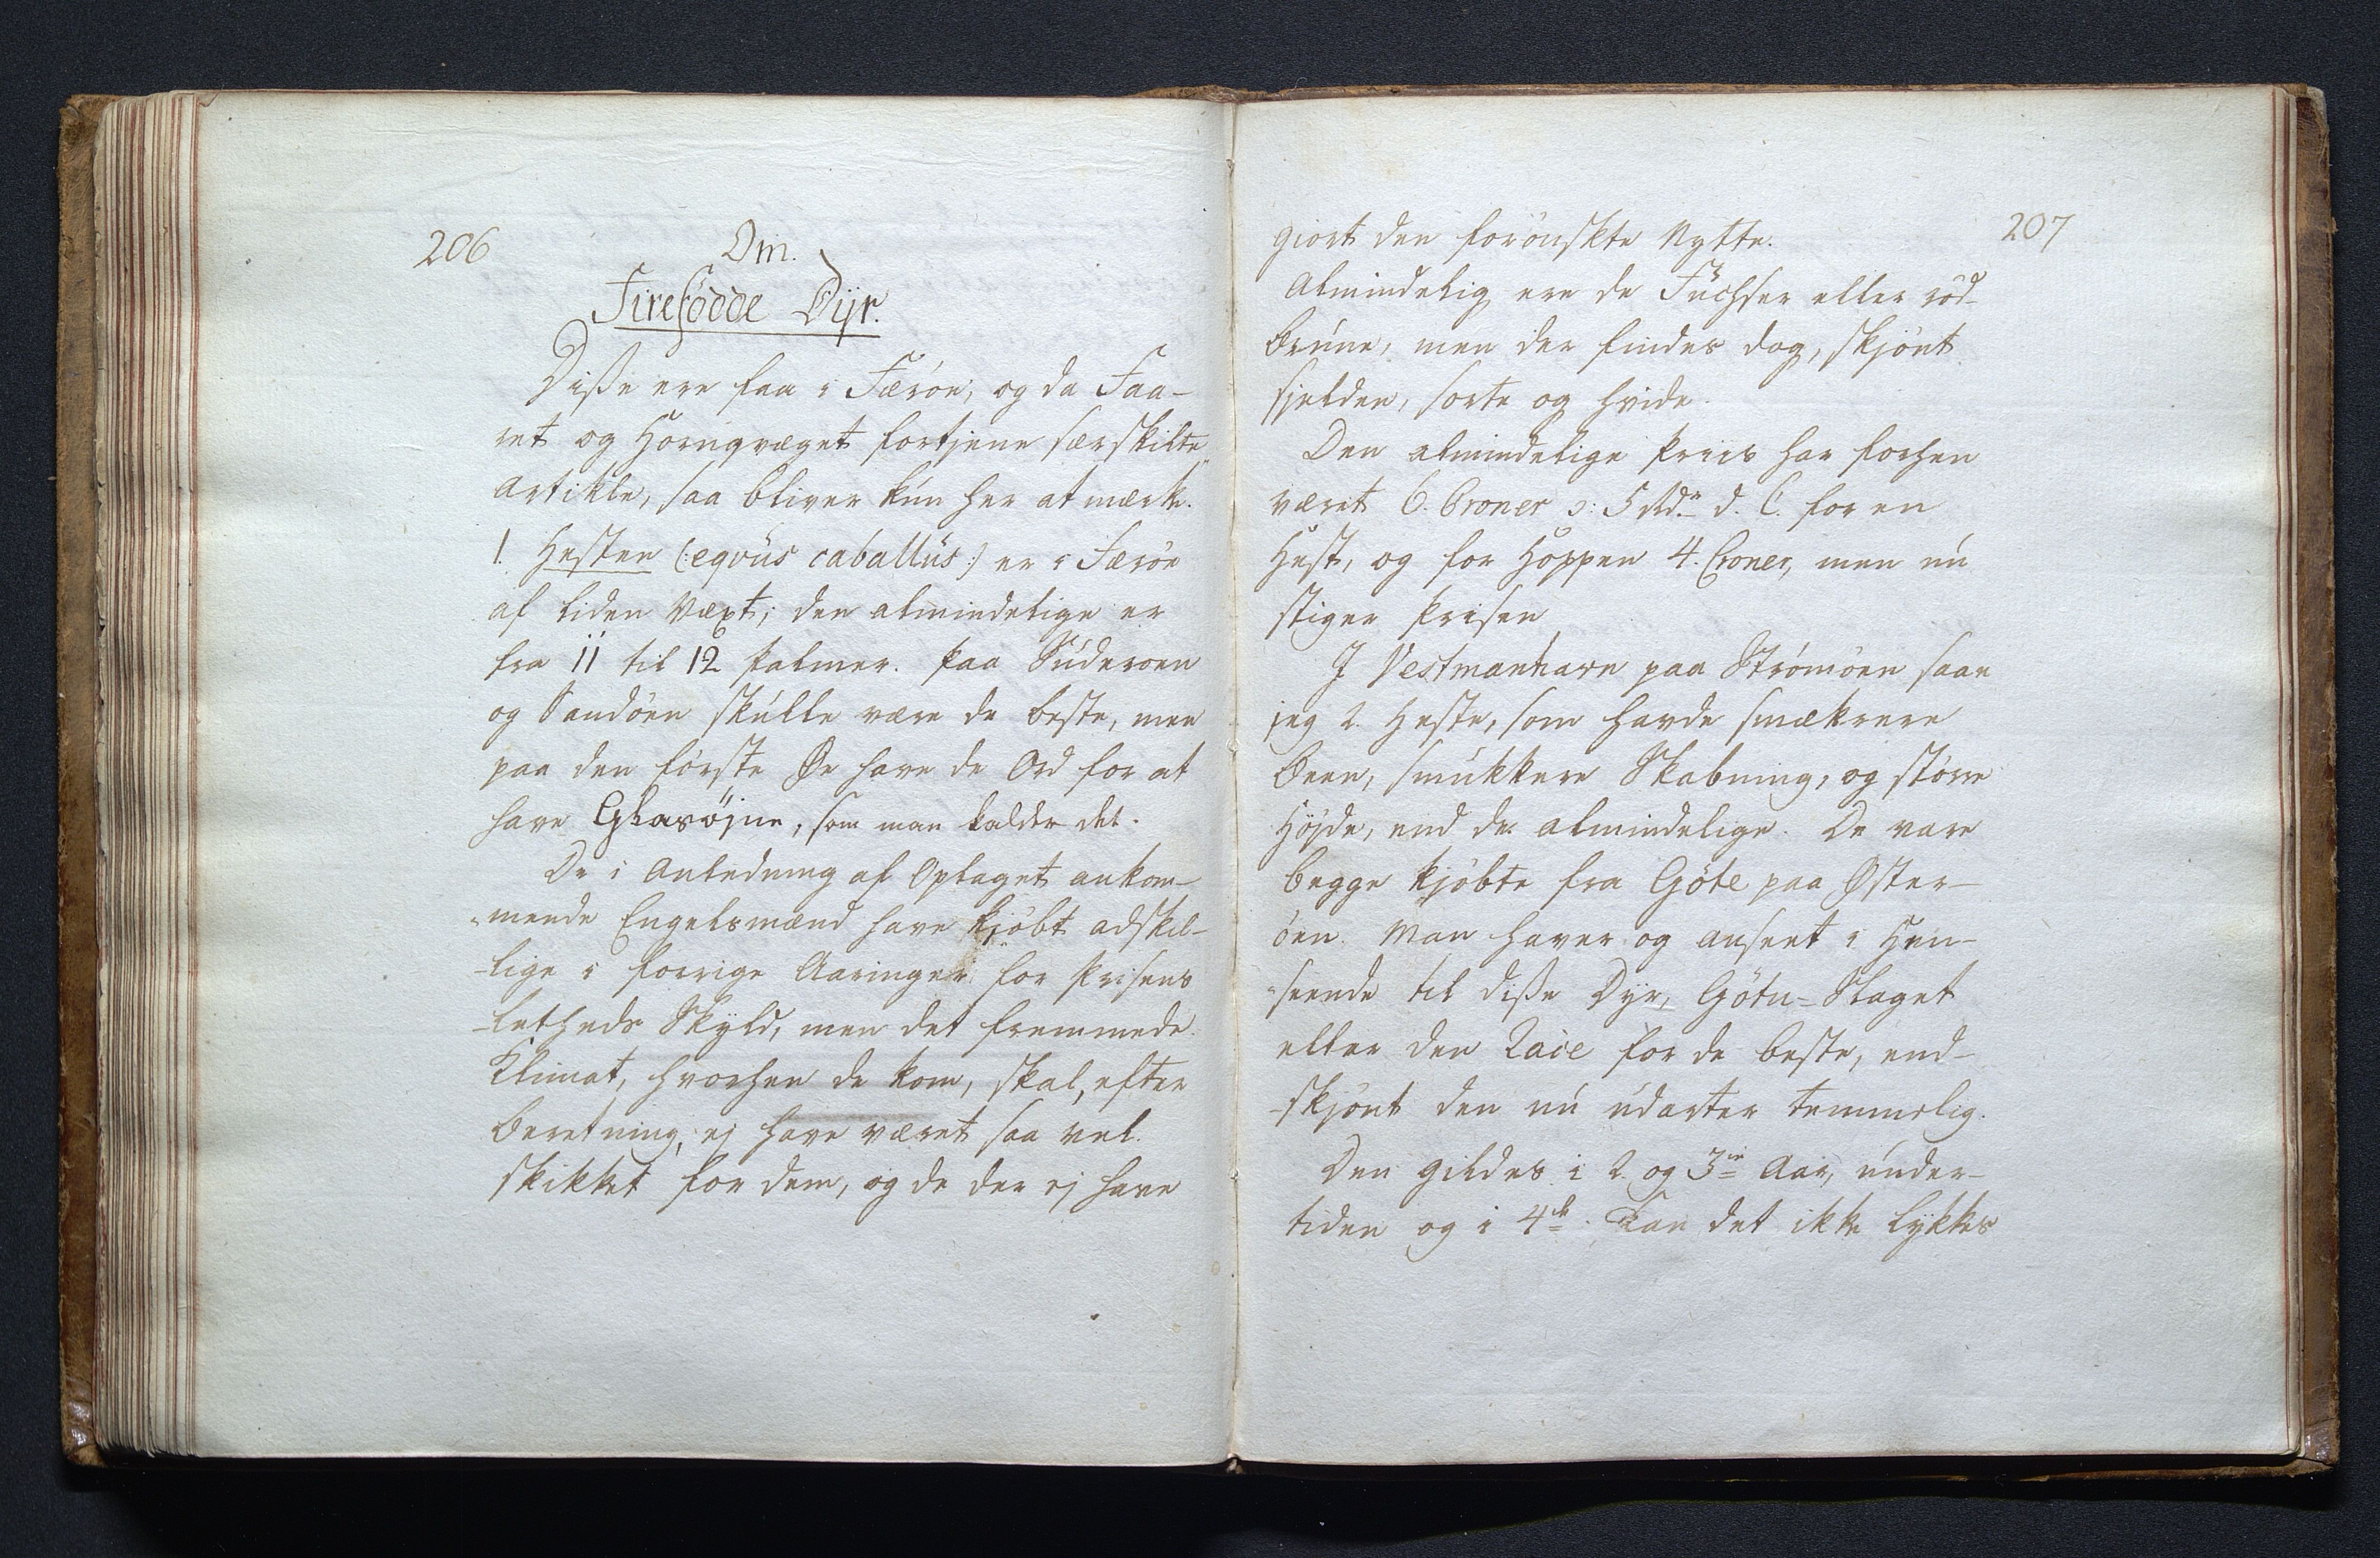 206
Om.
Firefødde Dyr.
Disse ere faa i Færøe, og da Faa-
ret og Hornqvæget fortjene særskilte
Artikle, saa bliver kún her at mærke.
1. Hesten (:eqvús caballús:) er i Færøe
af liden Væxt; den almindelige er
fra 11 til 12 Palmer. Paa Súderøen
og Sandöen skúlle være de beste, men
paa den förste Øe have de Ord for at
have Glasöjne, som man kalder det.
De i Anledning af Oplaget ankom-
-mende Engelsmænd have kjöbt adskil-
-lige i forrige Aaringer for Prisens
-letheds Skyld, men det fremmede
Klimat, hvorhen de kom, skal, efter
Beretning, ej have været saa vel
skikket for dem, og de der ej have
207
giort den forönskte Nytte.
Almindelig ere de Fúchser eller röd-
brúne, men der findes dog, skjönt
sjelden, sorte og hvide.
Den almindelige Priis har forhen
været 6. Croner ɔ: 5 Rdr d. C. for en
Hest, og for Hoppen 4. Croner, men nú
stiger Prisen
I Vestmanhavn paa Strömöen saae
jeg 2. Heste, som havde smækrere
Been, smúkkere Skabning, og större
Höjde, end de almindelige. De vare
begge kjöbte fra Göte paa Øster-
öen. Man haver og anseet i Hen-
-seende til disse Dyr, Götu-Slaget
eller den Race for de beste, end-
-skjönt den nú údarter temmelig.
Den gildes i 2. og 3die Aar, únder-
tiden og i 4de. Kan det ikke lykkes